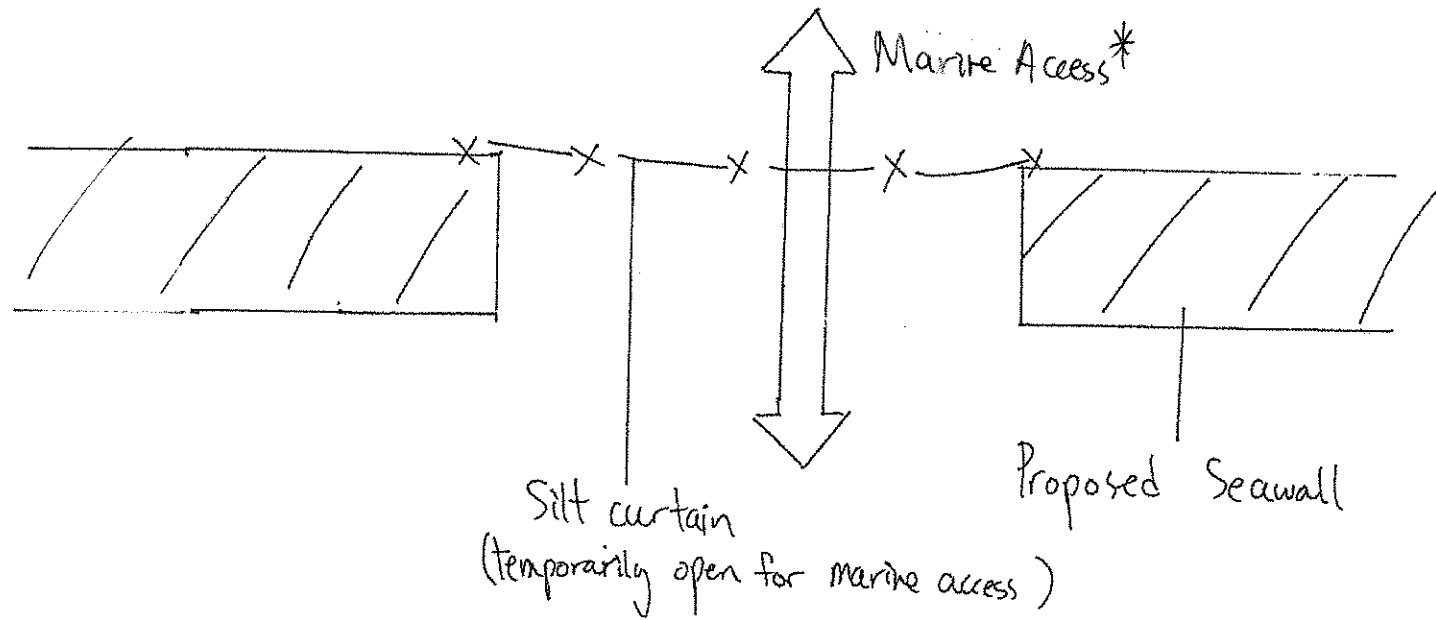 Marine Access*
Silt curtain
(temporarily open for marine access)
Proposed Seawall